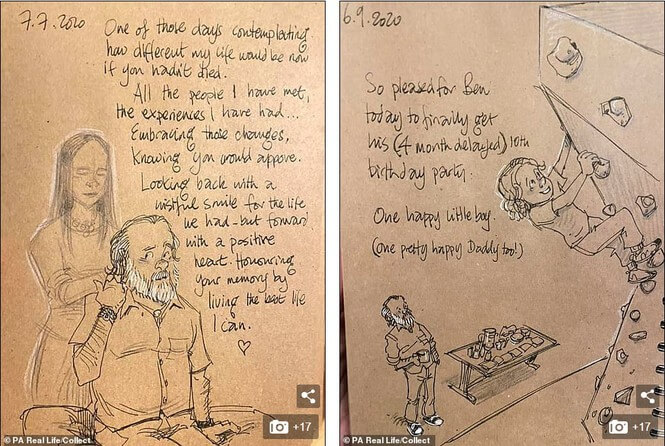 7.7.2020
One of those days contemplating
how different my life would be now
if you hadn't died.
All the people I have met,
the experiences I have had...
Embracing those changes,
knowing you would approve.
Looking back with a
wistful smile for the life
we had - but forward
with a positive
heart. Honouring
your memory by
living the best life
I can.
+17
© PA Real Life/Collect
6.9.2020
So pleased for Ben
today to finally get
his (4 month delayed) 10th
birthday party.
One happy little boy.
(One pretty happy Daddy too!)
+17
© PA Real Life/Collect